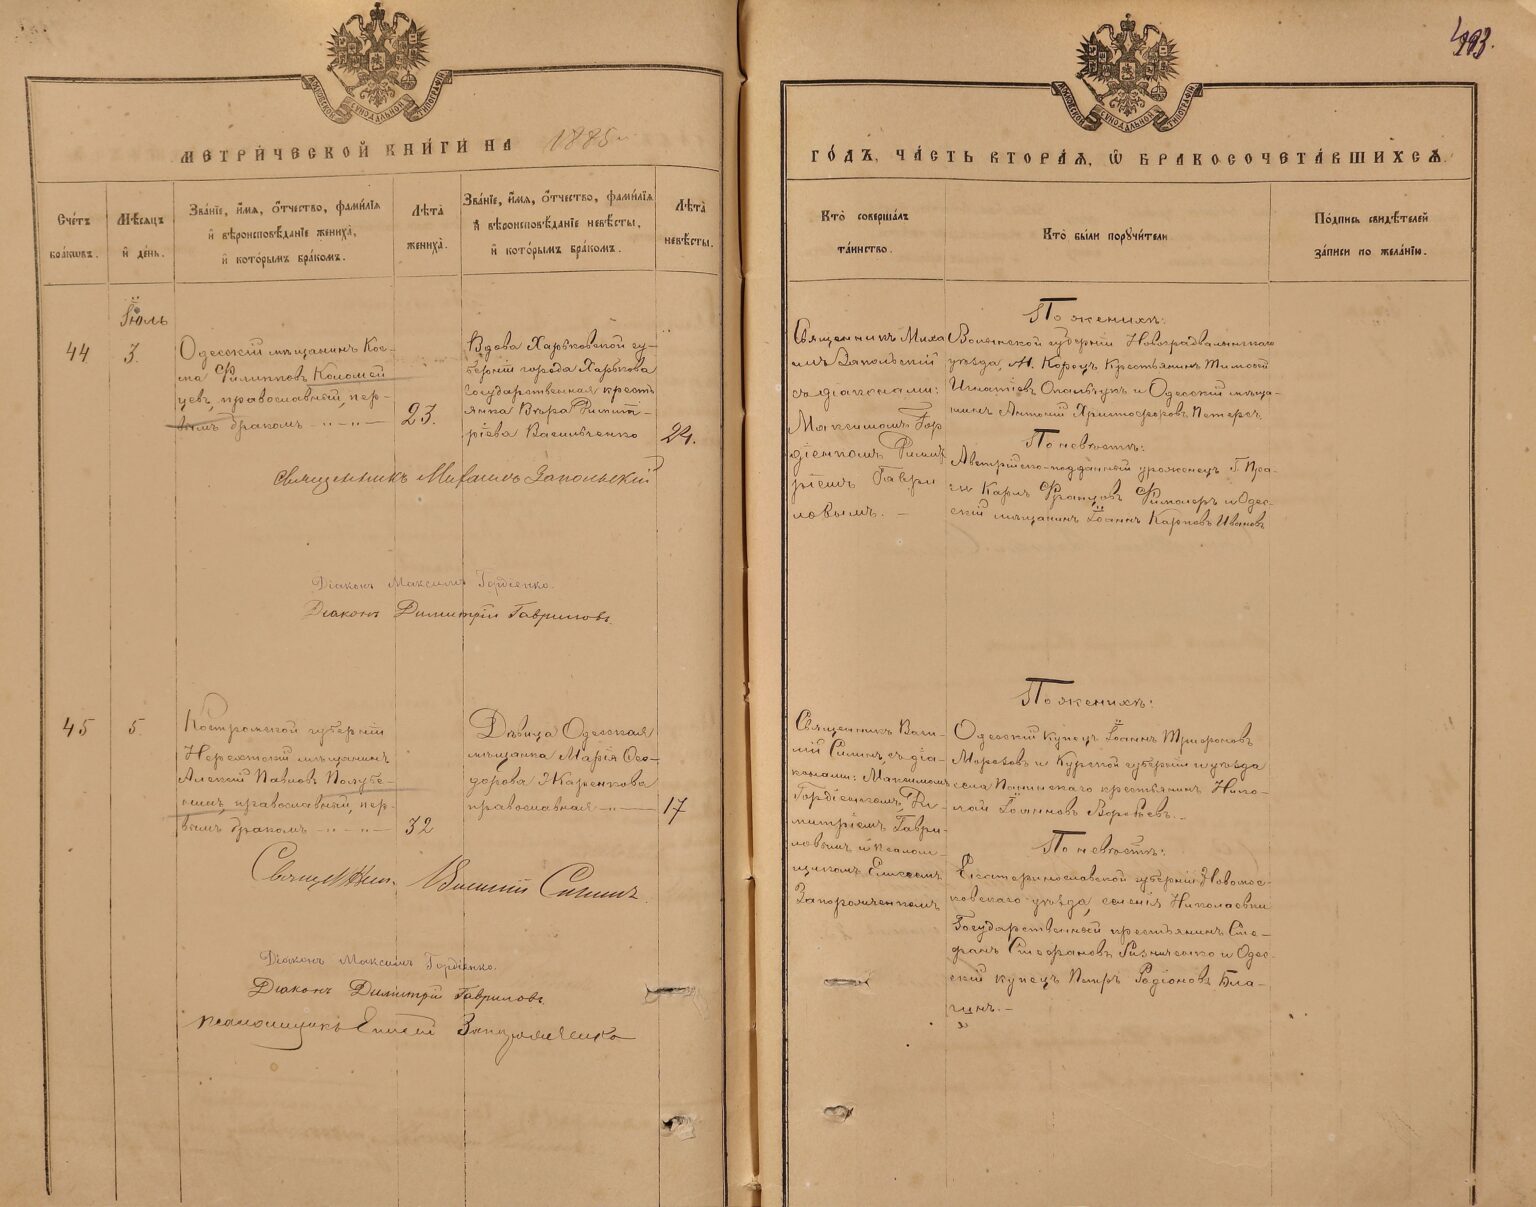 МОСКОВСКОЙ СѴНОДАЛЬНОЙ ТИПОГРАФІИ
МЕТРИ́ЧЕСКОЙ КНИ́ГИ НА 1885 г.
Сче́тъ бра́кωвъ.
Мѣ́сяцъ и҆ де́нь.
Зва́нїе, и҆́мѧ, ѻ҆́тчество, фами́лїѧ
и҆ вѣроисповѣ́данїе жениха̀,
и҆ кото́рымъ бра́комъ.
Лѣ́та̀
жениха̀.
Зва́нїе, и҆́мѧ, ѻ҆́тчество, фами́лїѧ
и҆ вѣроисповѣ́данїе невѣ́сты,
и҆ кото́рымъ бра́комъ.
Лѣ́та̀
невѣ́сты.
Іюль
44
3.
Одесскій мѣщанинъ Кос-
ма Филипповъ Коломей
цевъ, православный, пер-
вымъ бракомъ
23.
Вдова Харьковской гу-
берніи города Харькова
Государственная кресть
янка Вѣра Димит-
ріева Васильченко
24.
Священникъ Михаилъ Запольскій
Діаконъ Максимъ Гордіенко.
Діаконъ Димитрій Гавриловъ.
45
5.
Костромской губерніи
Нерехтскій мѣщанинъ
Алексій Павловъ
православный, пер-
вымъ бракомъ
32
Дѣвица Одесская
мѣщанка Марія Ѳео-
дорова Жаренкова
православная
17
Священ. Василій
Діаконъ Максимъ Гордіенко.
Діаконъ Димитрій Гавриловъ
Псаломщикъ Елисей
493.
МОСКОВСКОЙ СѴНОДАЛЬНОЙ ТИПОГРАФІИ
ГО́ДЪ, ЧА́СТЬ ВТОРА́Ѧ, Ѡ҆ БРАКОСОЧЕТА́ВШИХСѦ.
Кто̀ соверша́лъ
та́инство.
Кто̀ бы́ли порꙋчи́тели
По́дпись свидѣ́телей
за́писи по жела́нїю.
Священникъ Миха
илъ Запольскій
съ діаконами:
Максимомъ Гор
діенкомъ, Димит
ріемъ Гаври
ловымъ. —
По женихѣ:
Волынской губерніи Новоградволынскаго
уѣзда, М. Корецъ Крестьянинъ Тимофей
Игнатіевъ и Одесскій мѣща-
нинъ Антоній Христофоровъ Петерсъ.
По невѣстѣ:
Австрійско-подданный уроженецъ Г. Пра-
ги Карлъ Францовъ и Одес-
скій мѣщанинъ Іоаннъ Карповъ Ивановъ
Священникъ Васи-
лій съ діа-
конами: Максимомъ
Гордіенкомъ, Ди-
митріемъ Гаври-
ловымъ и псалом-
щикомъ Елисеемъ
По женихѣ:
Одесскій купецъ Іоаннъ Трифоновъ
Морозовъ и Курской губерніи и уѣзда
села крестьянинъ Нико-
лай Іоанновъ Воробьевъ. —
По невѣстѣ:
Екатеринославской губерніи Новомос-
ковскаго уѣзда, селенія Николаевки
Государственный крестьянинъ Сте-
фанъ Стефановъ Резниченко и Одес-
скій купецъ Петръ Родіоновъ Бла-
гинъ. —